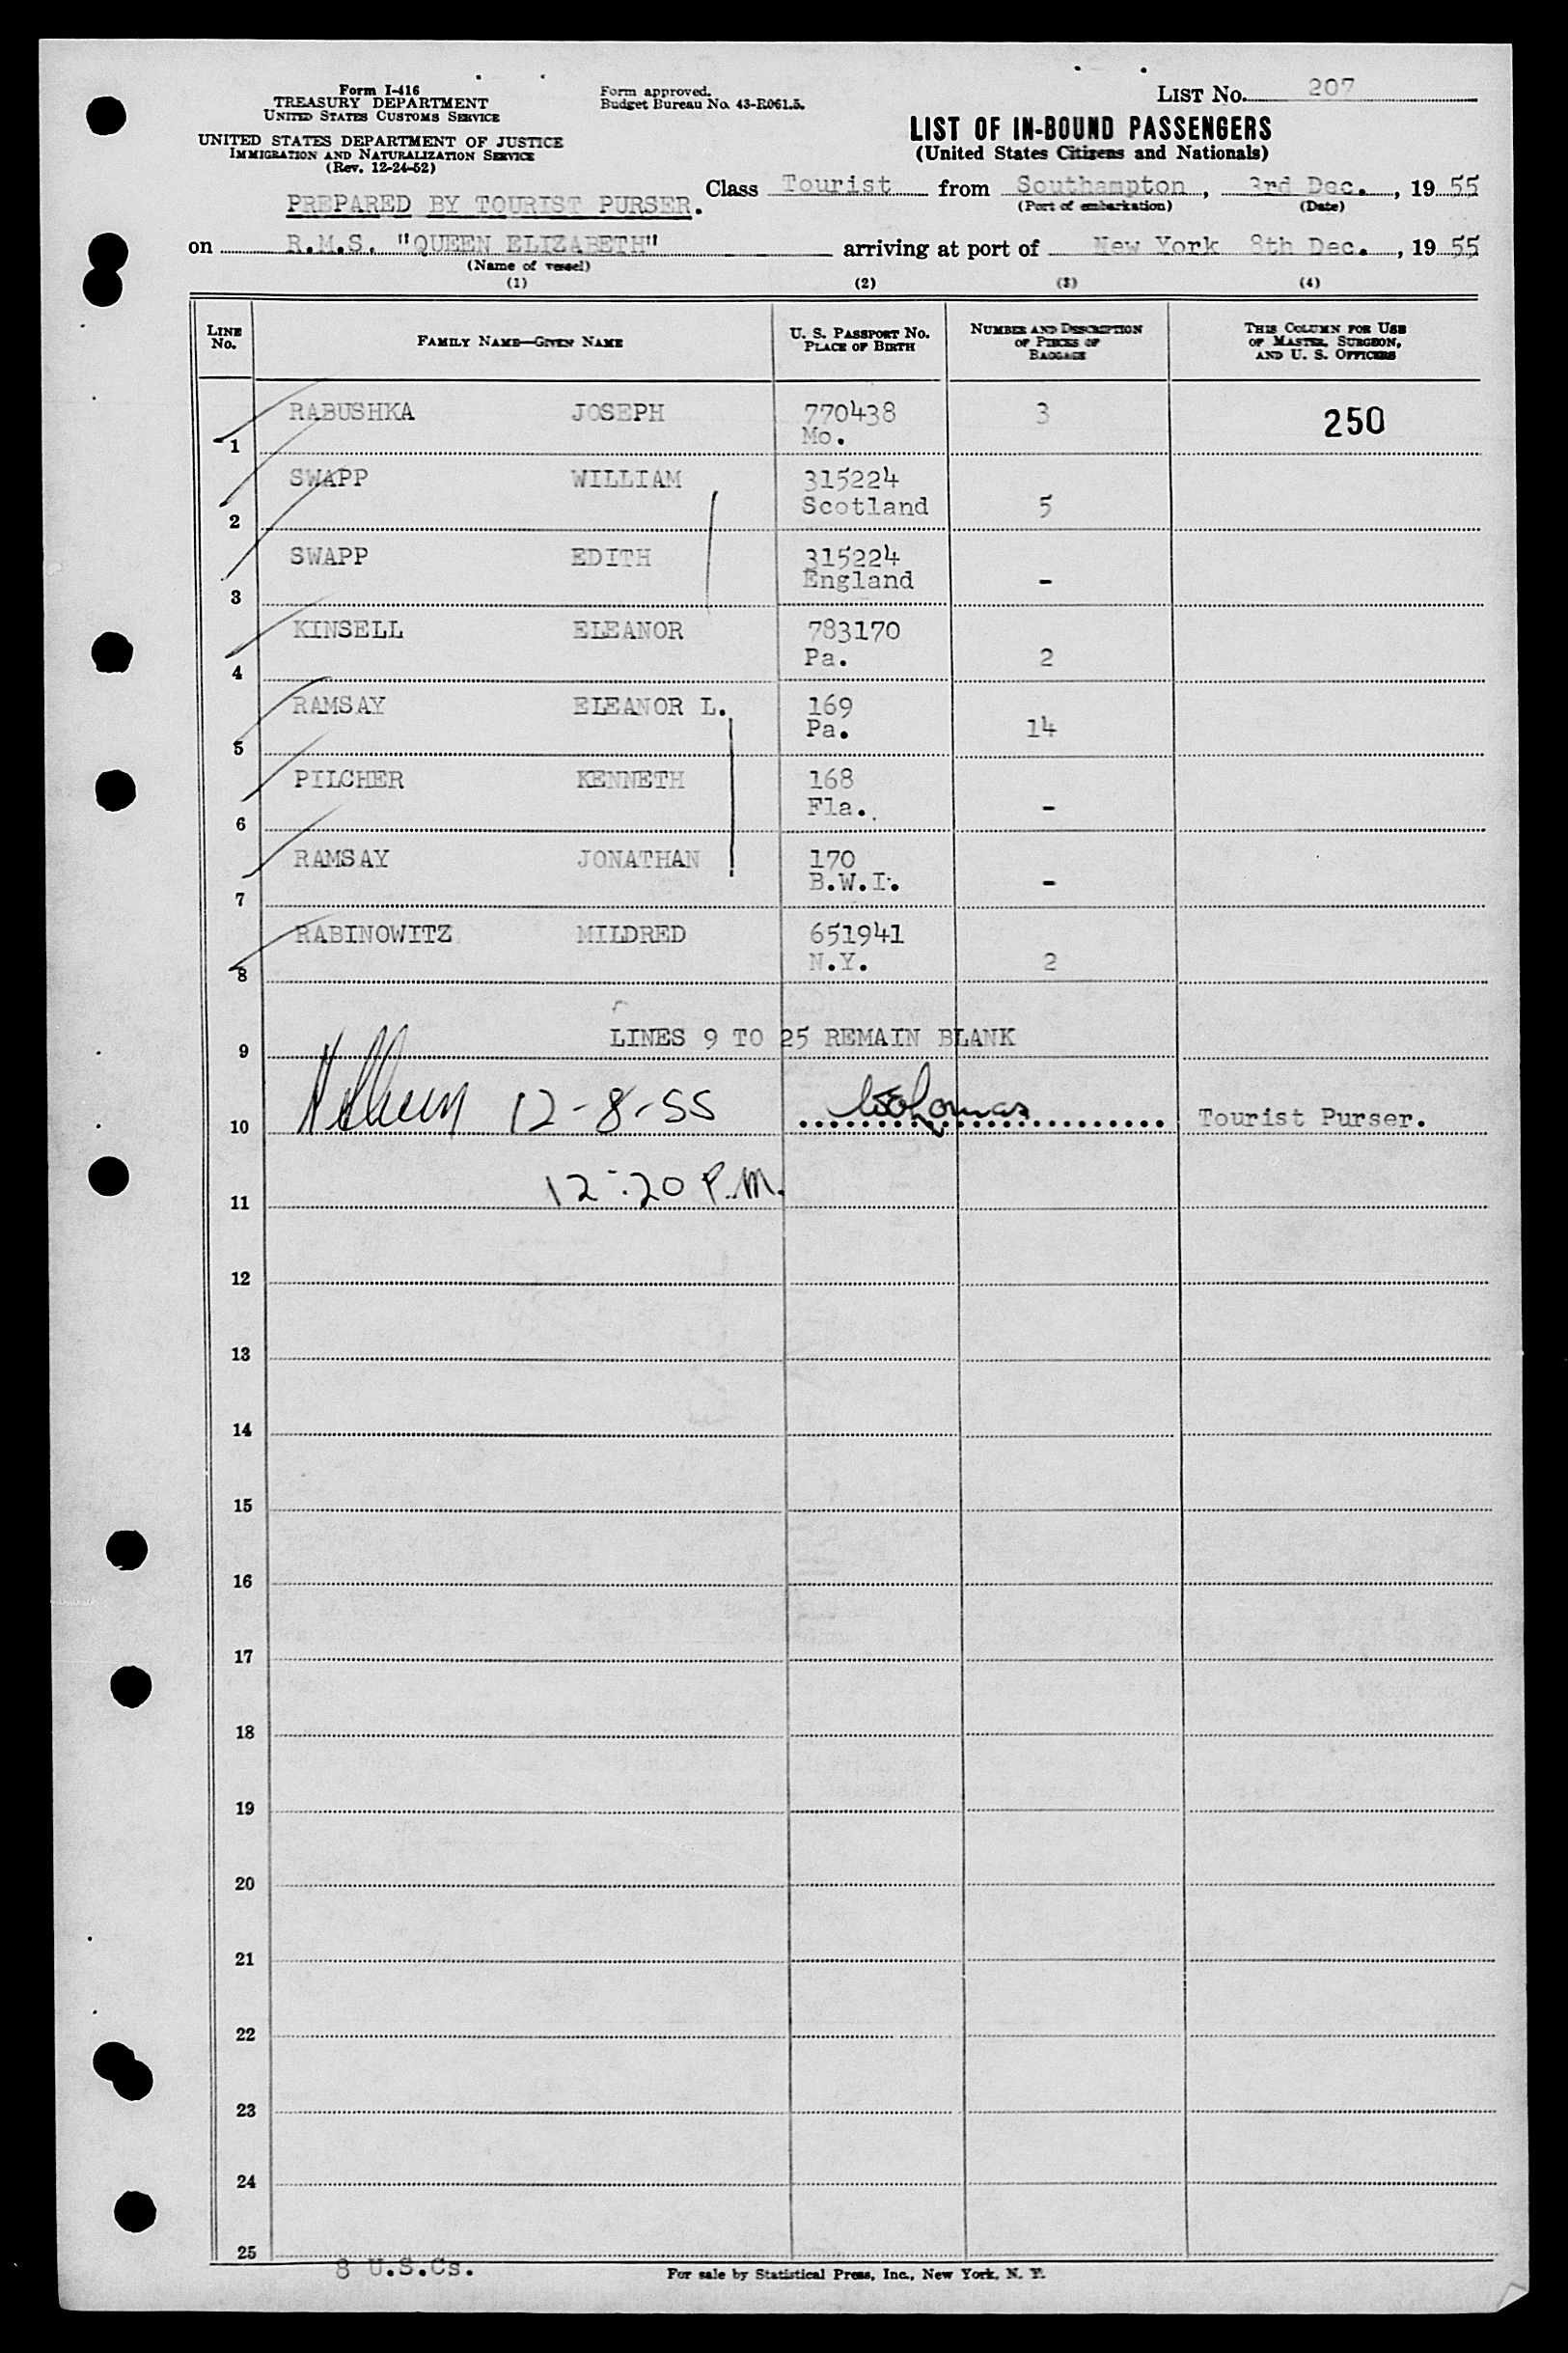 Form I-416
TREASURY DEPARTMENT
UNITED STATES CUSTOMS SERVICE
UNITED STATES DEPARTMENT OF JUSTICE
IMMIGRATION AND NATURALIZATION SERVICE
(Rev. 12-24-52)
Form approved.
Budget Bureau No. 43-R061.5.
LIST NO. 207
LIST OF IN-BOUND PASSENGERS
(United States Citizens and Nationals)
PREPARED BY TOURIST PURSER.
Class Tourist from Southampton, 3rd Dec., 1955
(Port of embarkation) (Date)
on R.M.S. "QUEEN ELIZABETH" arriving at port of New York 8th Dec., 1955
(Name of vessel)
(1) (2) (3) (4)
LINE No. FAMILY NAME—GIVEN NAME U. S. PASSPORT NO. PLACE OF BIRTH NUMBER AND DESCRIPTION OF PIECES OF BAGGAGE THIS COLUMN FOR USE OF MASTER, SURGEON, AND U. S. OFFICERS
1 RABUSHKA JOSEPH 770438 3 250
Mo.
2 SWAPP WILLIAM 315224
Scotland 5
3 SWAPP EDITH 315224
England -
4 KINSELL ELEANOR 783170
Pa. 2
5 RAMSAY ELEANOR L. 169
Pa. 14
6 PILCHER KENNETH 168
Fla. -
7 RAMSAY JONATHAN 170
B.W.I. -
8 RABINOWITZ MILDRED 651941
N.Y. 2
9 LINES 9 TO 25 REMAIN BLANK
10 12-8-55 Tourist Purser.
11 12:20 P.M.
12
13
14
15
16
17
18
19
20
21
22
23
24
25
8 U.S.Cs.
For sale by Statistical Press, Inc., New York, N. Y.